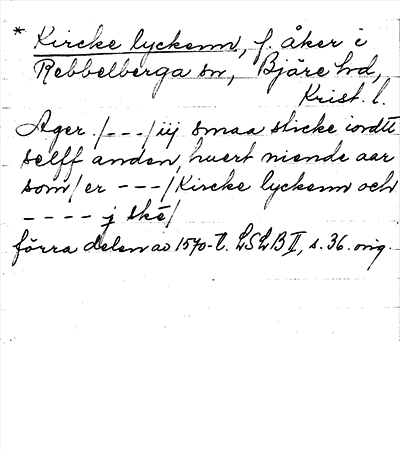 * Kircke lyckenn, f. åker i
Rebbelberga sn, Bjäre hd,
Krist. l.
Ager /---/ iij smaa sticke iordtt
selff anden, huert niende aar
som/er ---/Kircke lyckenn och
---- j ské/
förra delen av 1570-t. LSLB II, s. 36. orig.